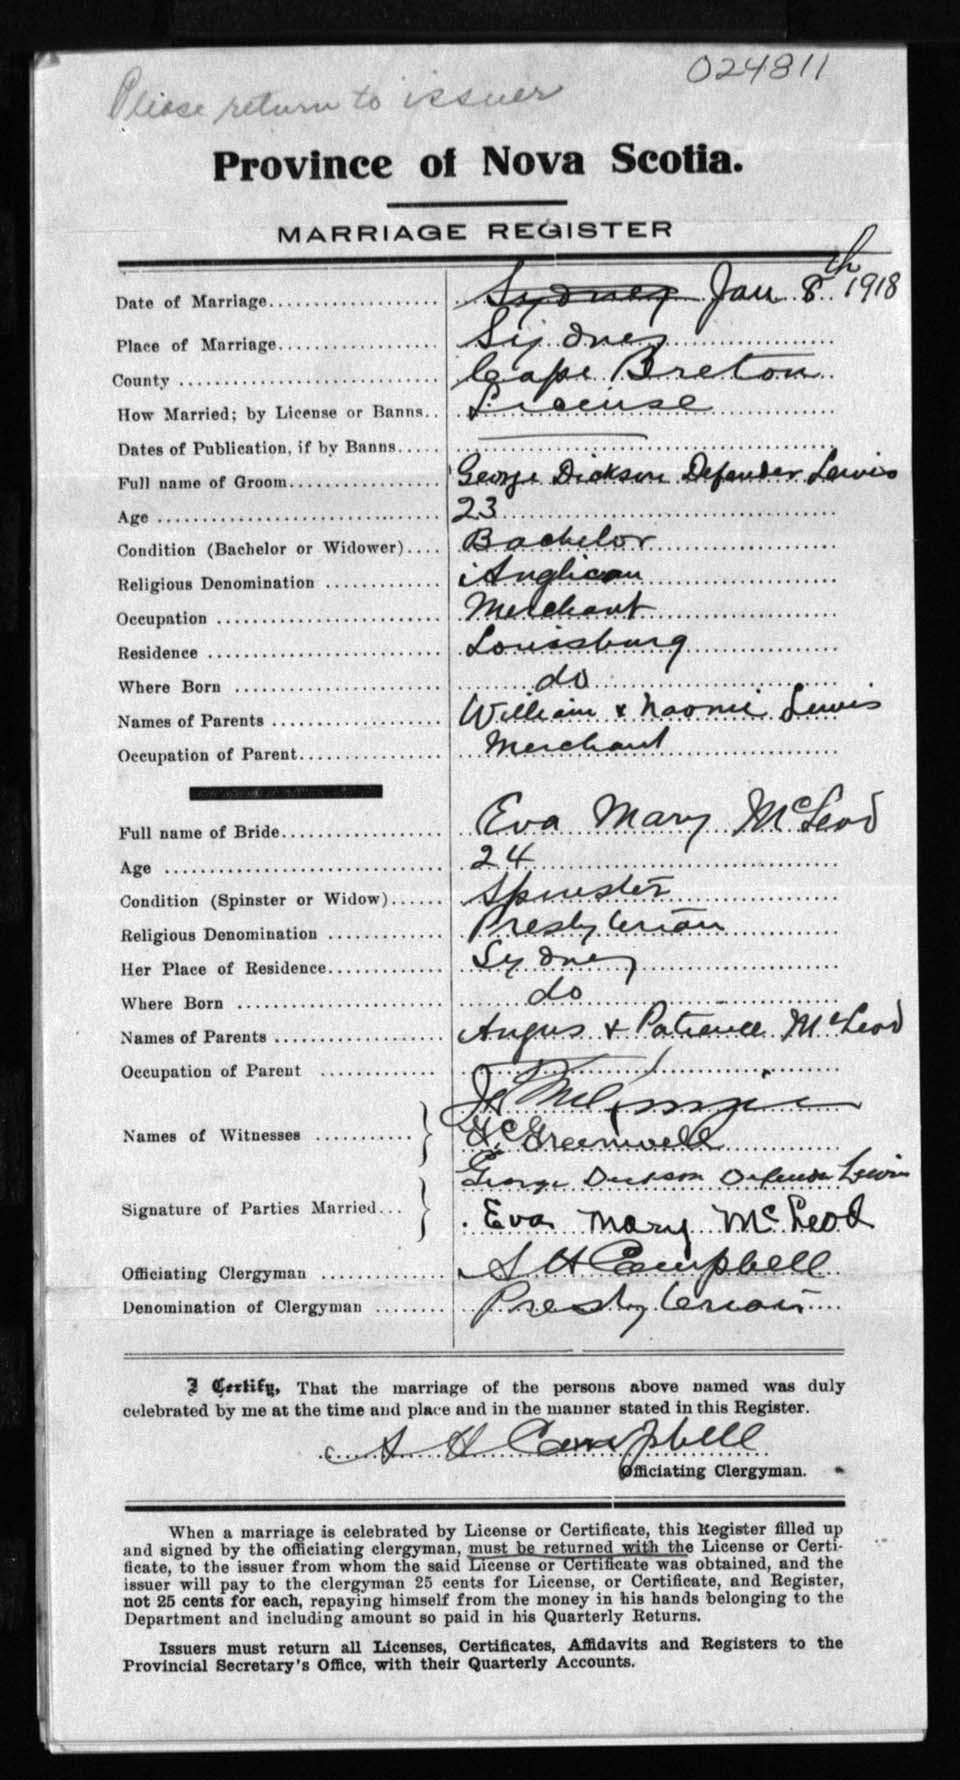 024811
Please return to issuer
Province of Nova Scotia.
MARRIAGE REGISTER
Date of Marriage.................... Sydney Jan 8th 1918
Place of Marriage................... Sydney
County .............................. Cape Breton
How Married; by License or Banns.. License
Dates of Publication, if by Banns.....
Full name of Groom.................. George Dickson Defender Lewis
Age ................................. 23
Condition (Bachelor or Widower).... Bachelor
Religious Denomination ............. Anglican
Occupation .......................... Merchant
Residence ........................... Louisburg
Where Born ........................ do
Names of Parents .................... William & Naomi Lewis
Occupation of Parent................. Merchant
Full name of Bride................... Eva Mary McLeod
Age ................................ 24
Condition (Spinster or Widow)...... Spinster
Religious Denomination ............. Presbyterian
Her Place of Residence.............. Sydney
Where Born ........................ do
Names of Parents .................... Angus & Patience McLeod
Occupation of Parent ..............
Names of Witnesses ............
Greenwell
George Dickson Defender Lewis
Signature of Parties Married... Eva Mary McLeod
Officiating Clergyman .............. A H Campbell
Denomination of Clergyman ........ Presbyterian
I Certify, That the marriage of the persons above named was duly
celebrated by me at the time and place and in the manner stated in this Register.
A H Campbell
Officiating Clergyman.
When a marriage is celebrated by License or Certificate, this Register filled up
and signed by the officiating clergyman, must be returned with the License or Certi-
ficate, to the issuer from whom the said License or Certificate was obtained, and the
issuer will pay to the clergyman 25 cents for License, or Certificate, and Register,
not 25 cents for each, repaying himself from the money in his hands belonging to the
Department and including amount so paid in his Quarterly Returns.
Issuers must return all Licenses, Certificates, Affidavits and Registers to the
Provincial Secretary's Office, with their Quarterly Accounts.